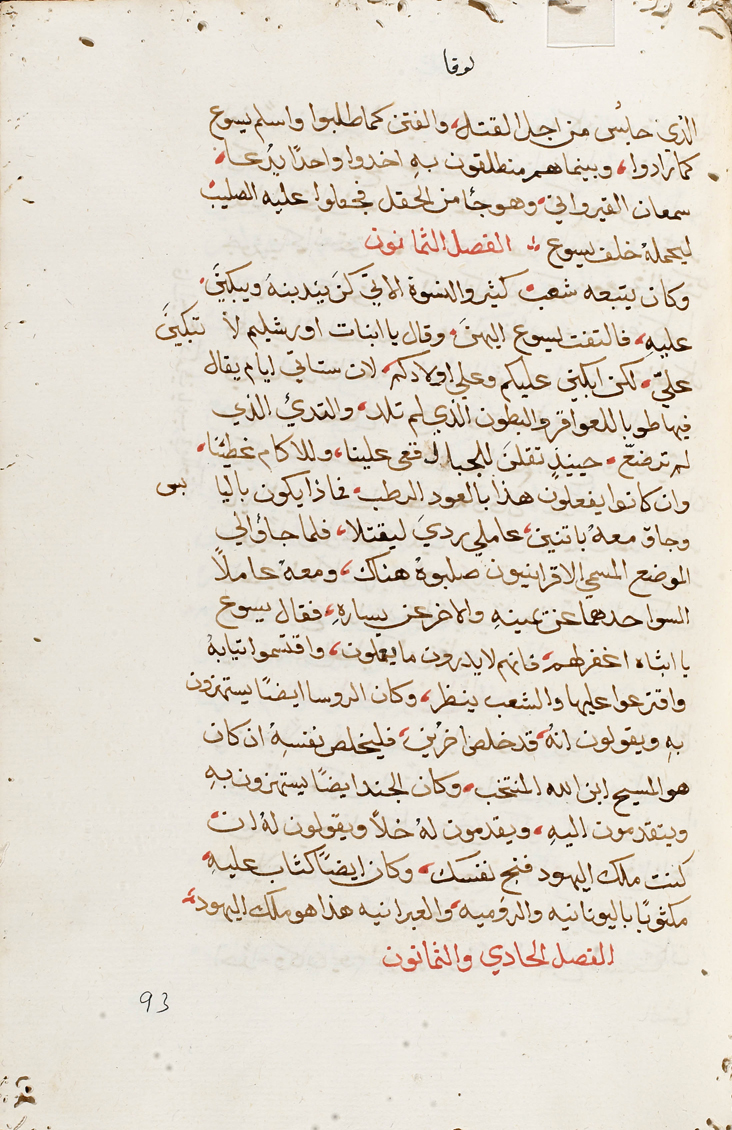 لوقا
الذي حابسى من اجل القتل، والفتن كما طلبوا واسلم يسوع
كما ارادوا، وبينما هم منطلقون به اخدوا واحدًا يدعا،
سمعان القيرواني، وهو جأ من الحقل فجعلوا عليه الصليب
ليحمله خلف يسوع ؞ الفصل الثمانون
وكان يتبعه شعب كثير والنسوة الاتي كنَ يندبنهُ ويبكينَ،
عليهِ، فالتفت يسوع اليهنَ، وقال يا ابنات اورشليم لا تبكينَ
عليّ، لكن ابكين عليكم وعلي اولادكم، لان ستاتي ايام يقال
فيها طوبا للعواقر والبطون الذي لم تلد، والتديُ الذي
لم ترضع، حينيذٍ تقلنَ للجبال قعى علينا، وللاكام غطينا،
وان كانوا يفعلون هذا بالعود الرطب، فماذا يكون باليابس
وجاو معهُ باتنين، عاملي رديَ ليقتلا، فلما جاو الي
الموضع المسمي الاقرانيون صلبوهُ هناك، ومعهُ عاملاً
السوا احدهما عن يمينهِ والاخر عن يسارهِ، فقال يسوع
يا ابتاه اغفر لهم، فانهم لا يدرون ما يعملون، واقتسموا تيابهُ
واقترعوا عليها والشعب ينظر، وكان الروسا ايضًا يستهزون
بهِ ويقولون انهُ، قد خلص اخرين، فليخلص نفسهُ ان كان
هو المسيح ابن الله المنتخب، وكان الجند ايضًا يستهزون بهِ
ويتقدمون اليهِ، ويقدمون لهُ خلاً ويقولون لهُ ان
كنت ملك اليهود فنج نفسك، وكان ايضًا كتاب عليهِ
مكتوبًا باليونانيه والروميه، والعبرانيه هذا هو ملك اليهود،
الفصل الحادي والثمانون
93